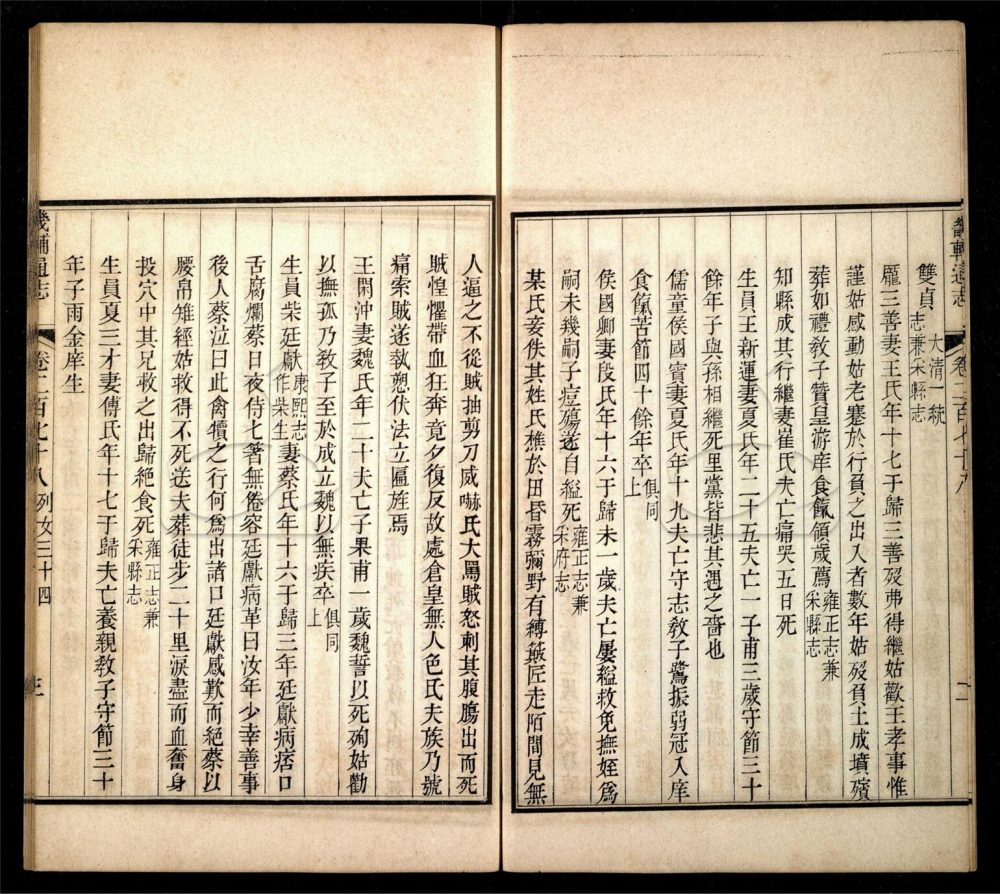 畿輔通志
卷二百七十八
二
雙貞大清一統志兼采縣志
龎三善妻王氏年十七于歸三善歿弗得繼姑歡王孝事惟
謹姑感動姑老蹇於行負之出入者數年姑歿負土成墳殯
葬如禮敎子贊皇游庠食餼領歲薦雍正志兼采縣志
知縣成其行繼妻崔氏夫亡痛哭五日死
生員王新運妻夏氏年二十五夫亡一子甫三歲守節三十
餘年子與孫相繼死里黨皆悲其遇之嗇也
儒童侯國賓妻夏氏年十九夫亡守志敎子鷺振弱冠入庠
食餼苦節四十餘年卒俱同上
侯國卿妻段氏年十六于歸未一歲夫亡屢縊救免撫姪爲
嗣未幾嗣子痘殤遂自縊死雍正志兼采府志
某氏妾佚其姓氏樵於田昏霧彌野有縛簸匠走陌間見無
人逼之不從賊抽剪刀威嚇氏大罵賊怒刺其腹腸出而死
賊惶懼帶血狂奔竟夕復反故處倉皇無人色氏夫族乃號
痛索賊遂執愬伏法立匾旌焉
王閑沖妻魏氏年二十夫亡子果甫一歲魏誓以死殉姑勸
以撫孤乃敎子至於成立魏以無疾卒俱同上
生員柴廷獻康熙志作柴生妻蔡氏年十六于歸三年廷獻病痞口
舌腐爛蔡日夜侍七著無倦容廷獻病革曰汝年少幸善事
後人蔡泣曰此禽犢之行何爲出諸口廷獻感歎而絕蔡以
腰帛雉經姑救得不死送夫葬徒步二十里淚盡而血奮身
投穴中其兄救之出歸絕食死雍正志兼采縣志
生員夏三才妻傅氏年十七于歸夫亡養親敎子守節三十
年子雨金庠生
畿輔通志
卷二百七十八
列女三十四